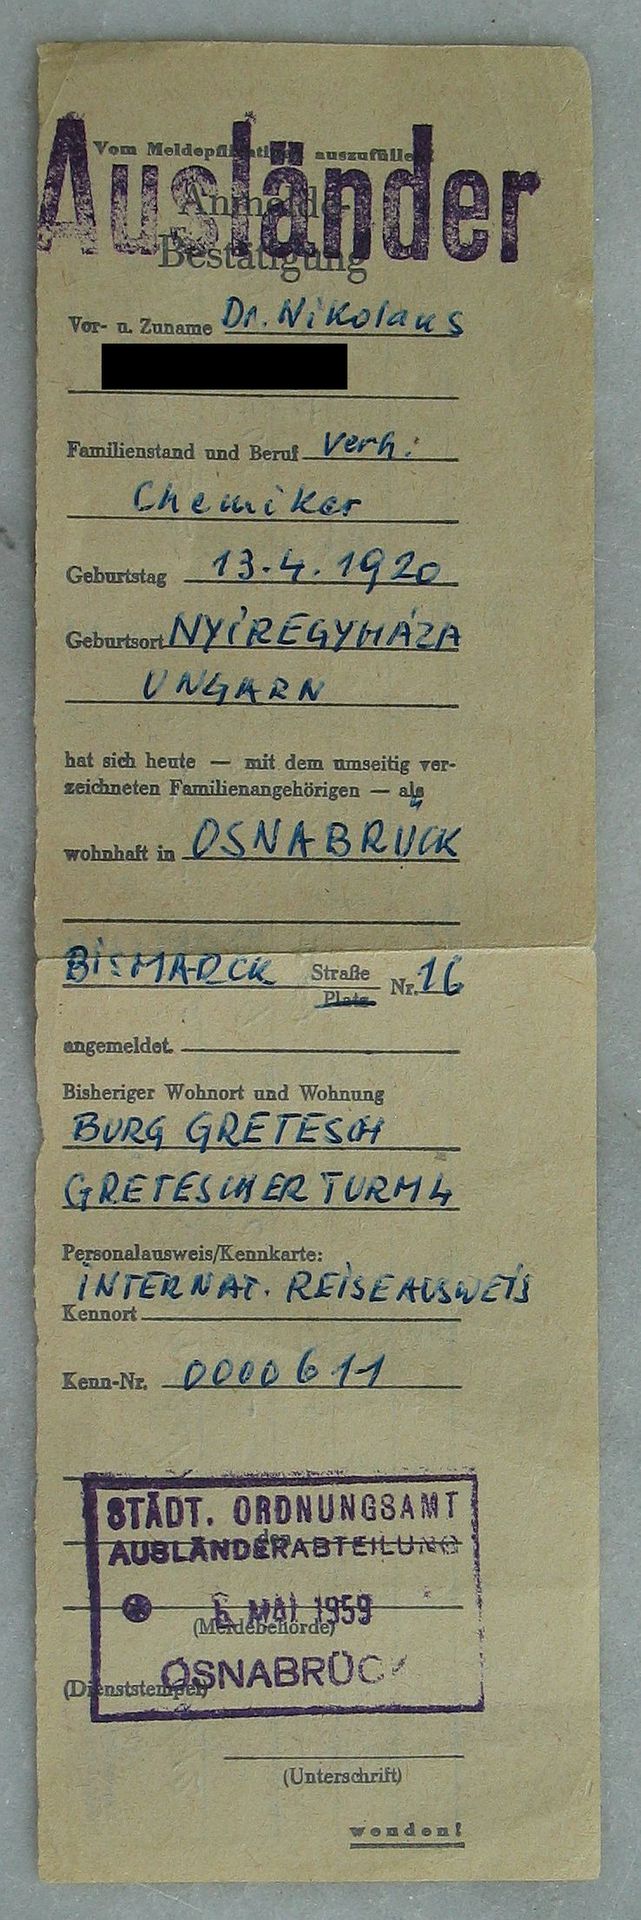 Ausländer
Vom Meldepflichtigen auszufüllen!
Anmelde-
Bestätigung
Vor- u. Zuname Dr. Nikolaus
Familienstand und Beruf verh.
Chemiker
Geburtstag 13.4.1920
Geburtsort NYÍREGYHÁZA
UNGARN
hat sich heute — mit dem umseitig ver-
zeichneten Familienangehörigen — als
wohnhaft in OSNABRÜCK
BISMARCK Straße Nr. 16
Platz
angemeldet.
Bisheriger Wohnort und Wohnung
BURG GRETESCH
GRETESCHER TURM 4
Personalausweis/Kennkarte:
INTERNAT. REISEAUSWEIS
Kennort
Kenn-Nr. 0000611
STÄDT. ORDNUNGSAMT
den
AUSLÄNDERABTEILUNG
6. MAI 1959
(Meldebehörde)
OSNABRÜCK
(Dienststempel)
(Unterschrift)
wenden!